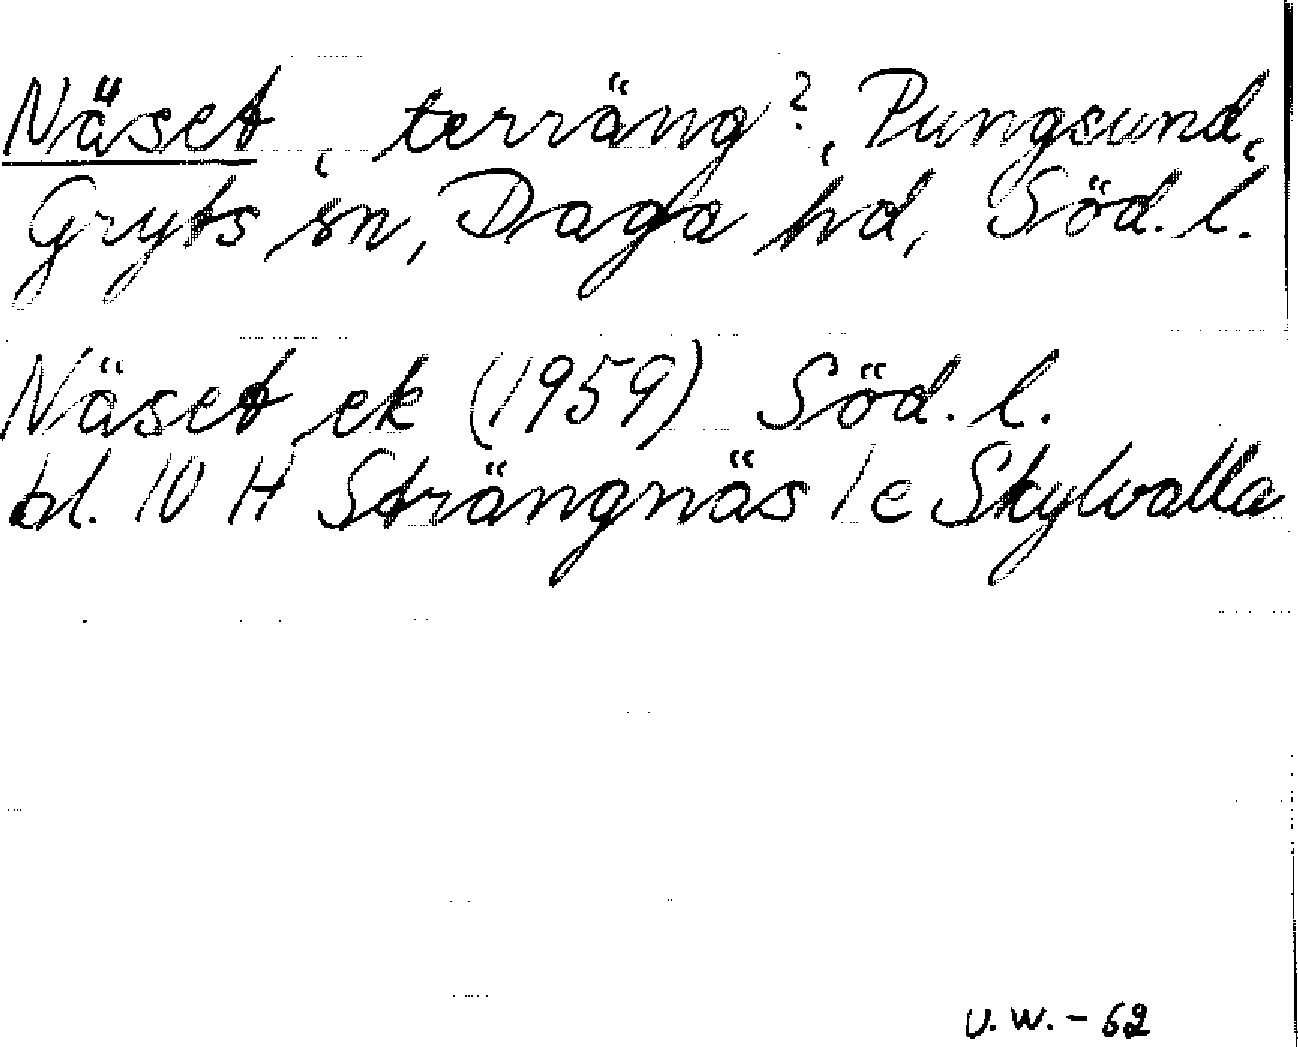 Näset, terräng?, Pungsund,
Gryts sn, Daga hd, Söd. l.
Näset ek (1959) Söd. l.
bl. 10 H Strängnäs 1 e Skylvalla
U.W.-62